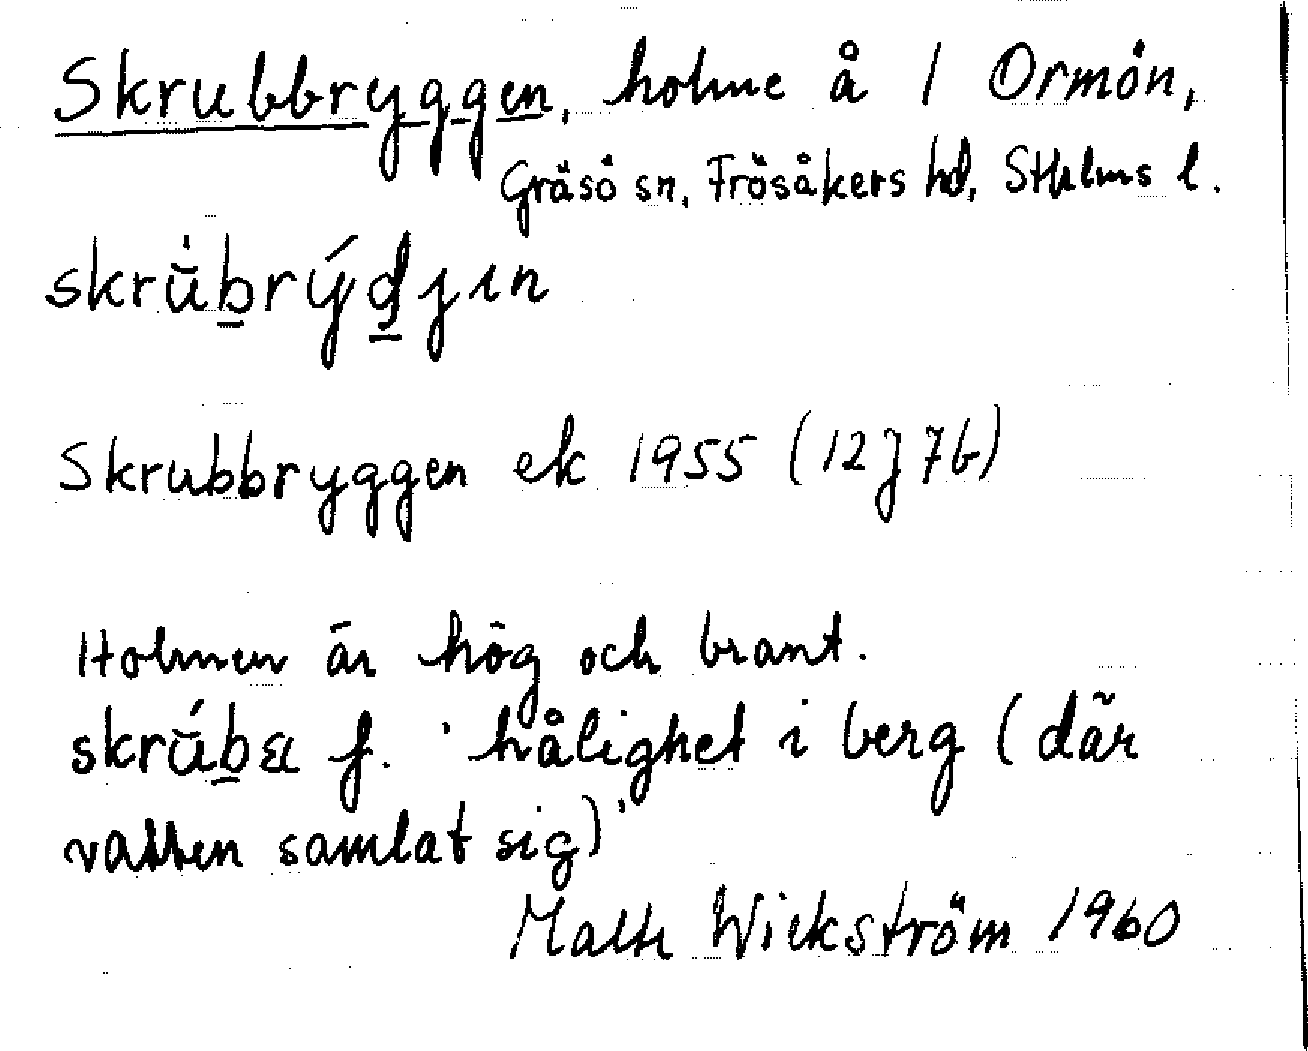 Skrubbryggen, holme å / Ormön,
Gräsö sn, Frösåkers hd, Sthlms l.
skrŭ̀b̲rýd̲ȷın
Skrubbryggen ek 1955 (12J7b)
Holmen är hög och brant.
skrŭ́b̲a f. 'hålighet i berg (där
vatten samlat sig)'
Malte Wickström 1960